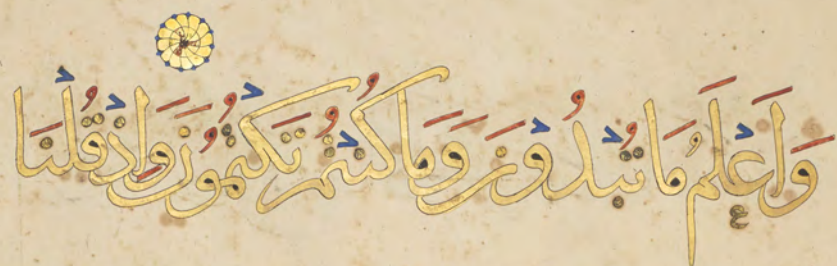 وَأَعْلَمُ مَا تُبْدُونَ وَمَا كُنْتُمْ تَكْتُمُونَ وَإِذْ قُلْنَا